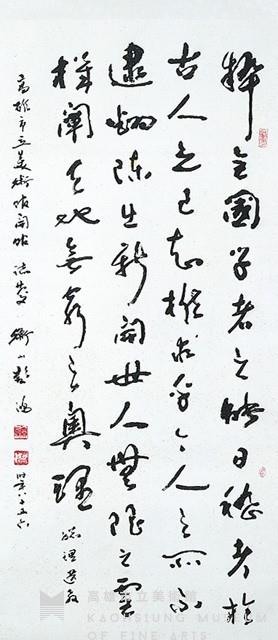 粹全國学者之時日稽考於
古人之已知推求今人之所不
逮翻陳生新開世人無限之靈
機闡天地無窮之奧理
高雄市立美術館開館誌慶 衡山彭鴻
高雄市立美術館
KAOHSIUNG MUSEUM
OF FINE ARTS